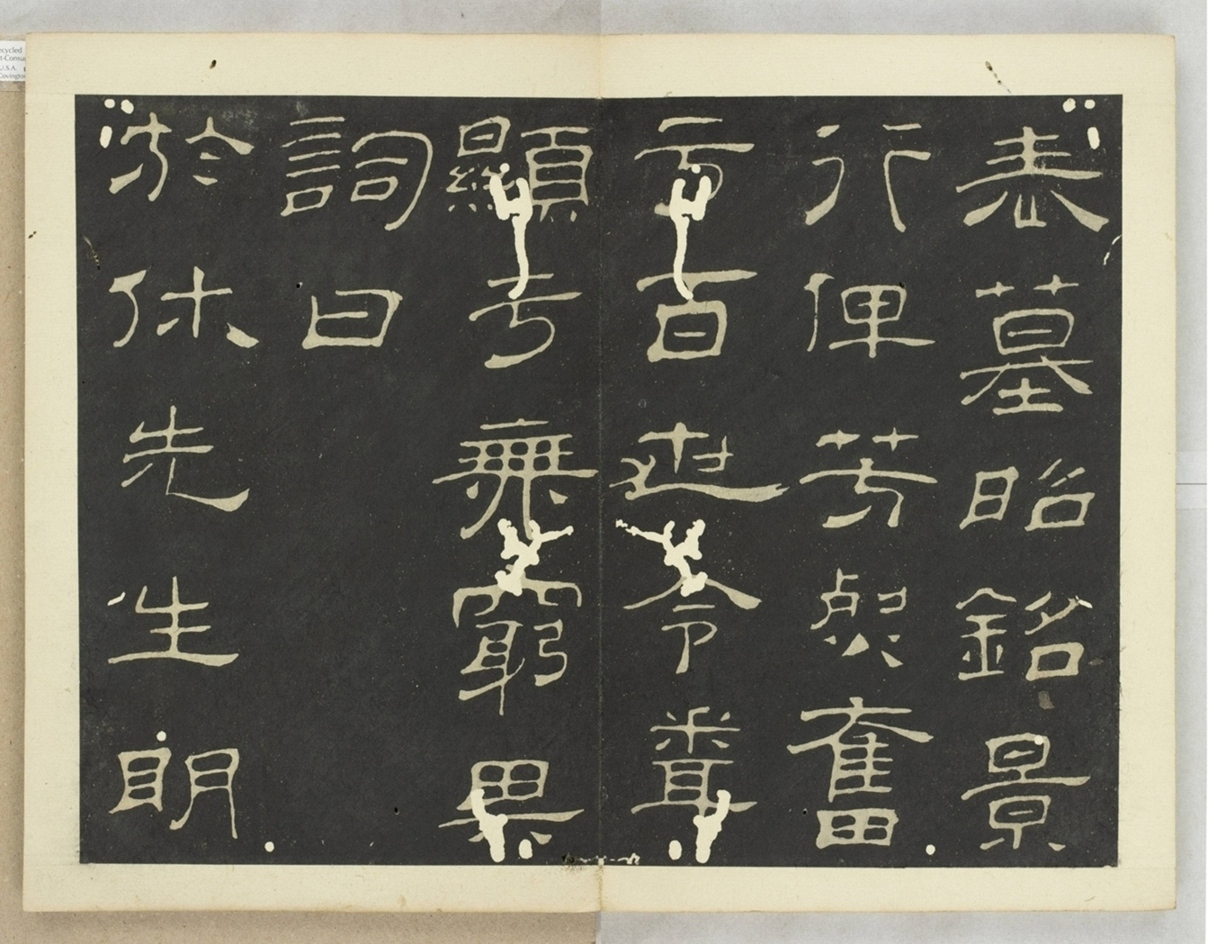 表墓昭銘景
行俾芳烈奮
于百世令聞
顯于無窮其
詞曰
於休先生明
ecycled
U.S.A.
Covington